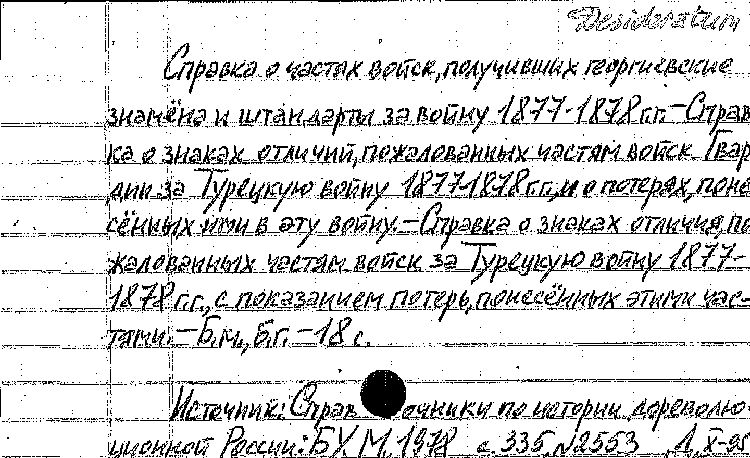 Desideratum
Справка о частях войск, получивших георгиевские
знамёна и штандарты за войну 1877-1878 г.г. – Справ
ка о знаках отличий, пожалованных частям войск Гвар
дии за Турецкую войну 1877-1878 г.г., и о потерях, поне
сённых ими в эту войну. – Справка о знаках отличия, по
жалованных частям войск за Турецкую войну 1877-
1878 г.г., с показанием потерь, понесённых этими час-
тями. – Б.м., б.г. – 18 с.
Источник: Справ очники по истории дореволю-
ционной России: БУ. М., 1978 с. 335, №2553